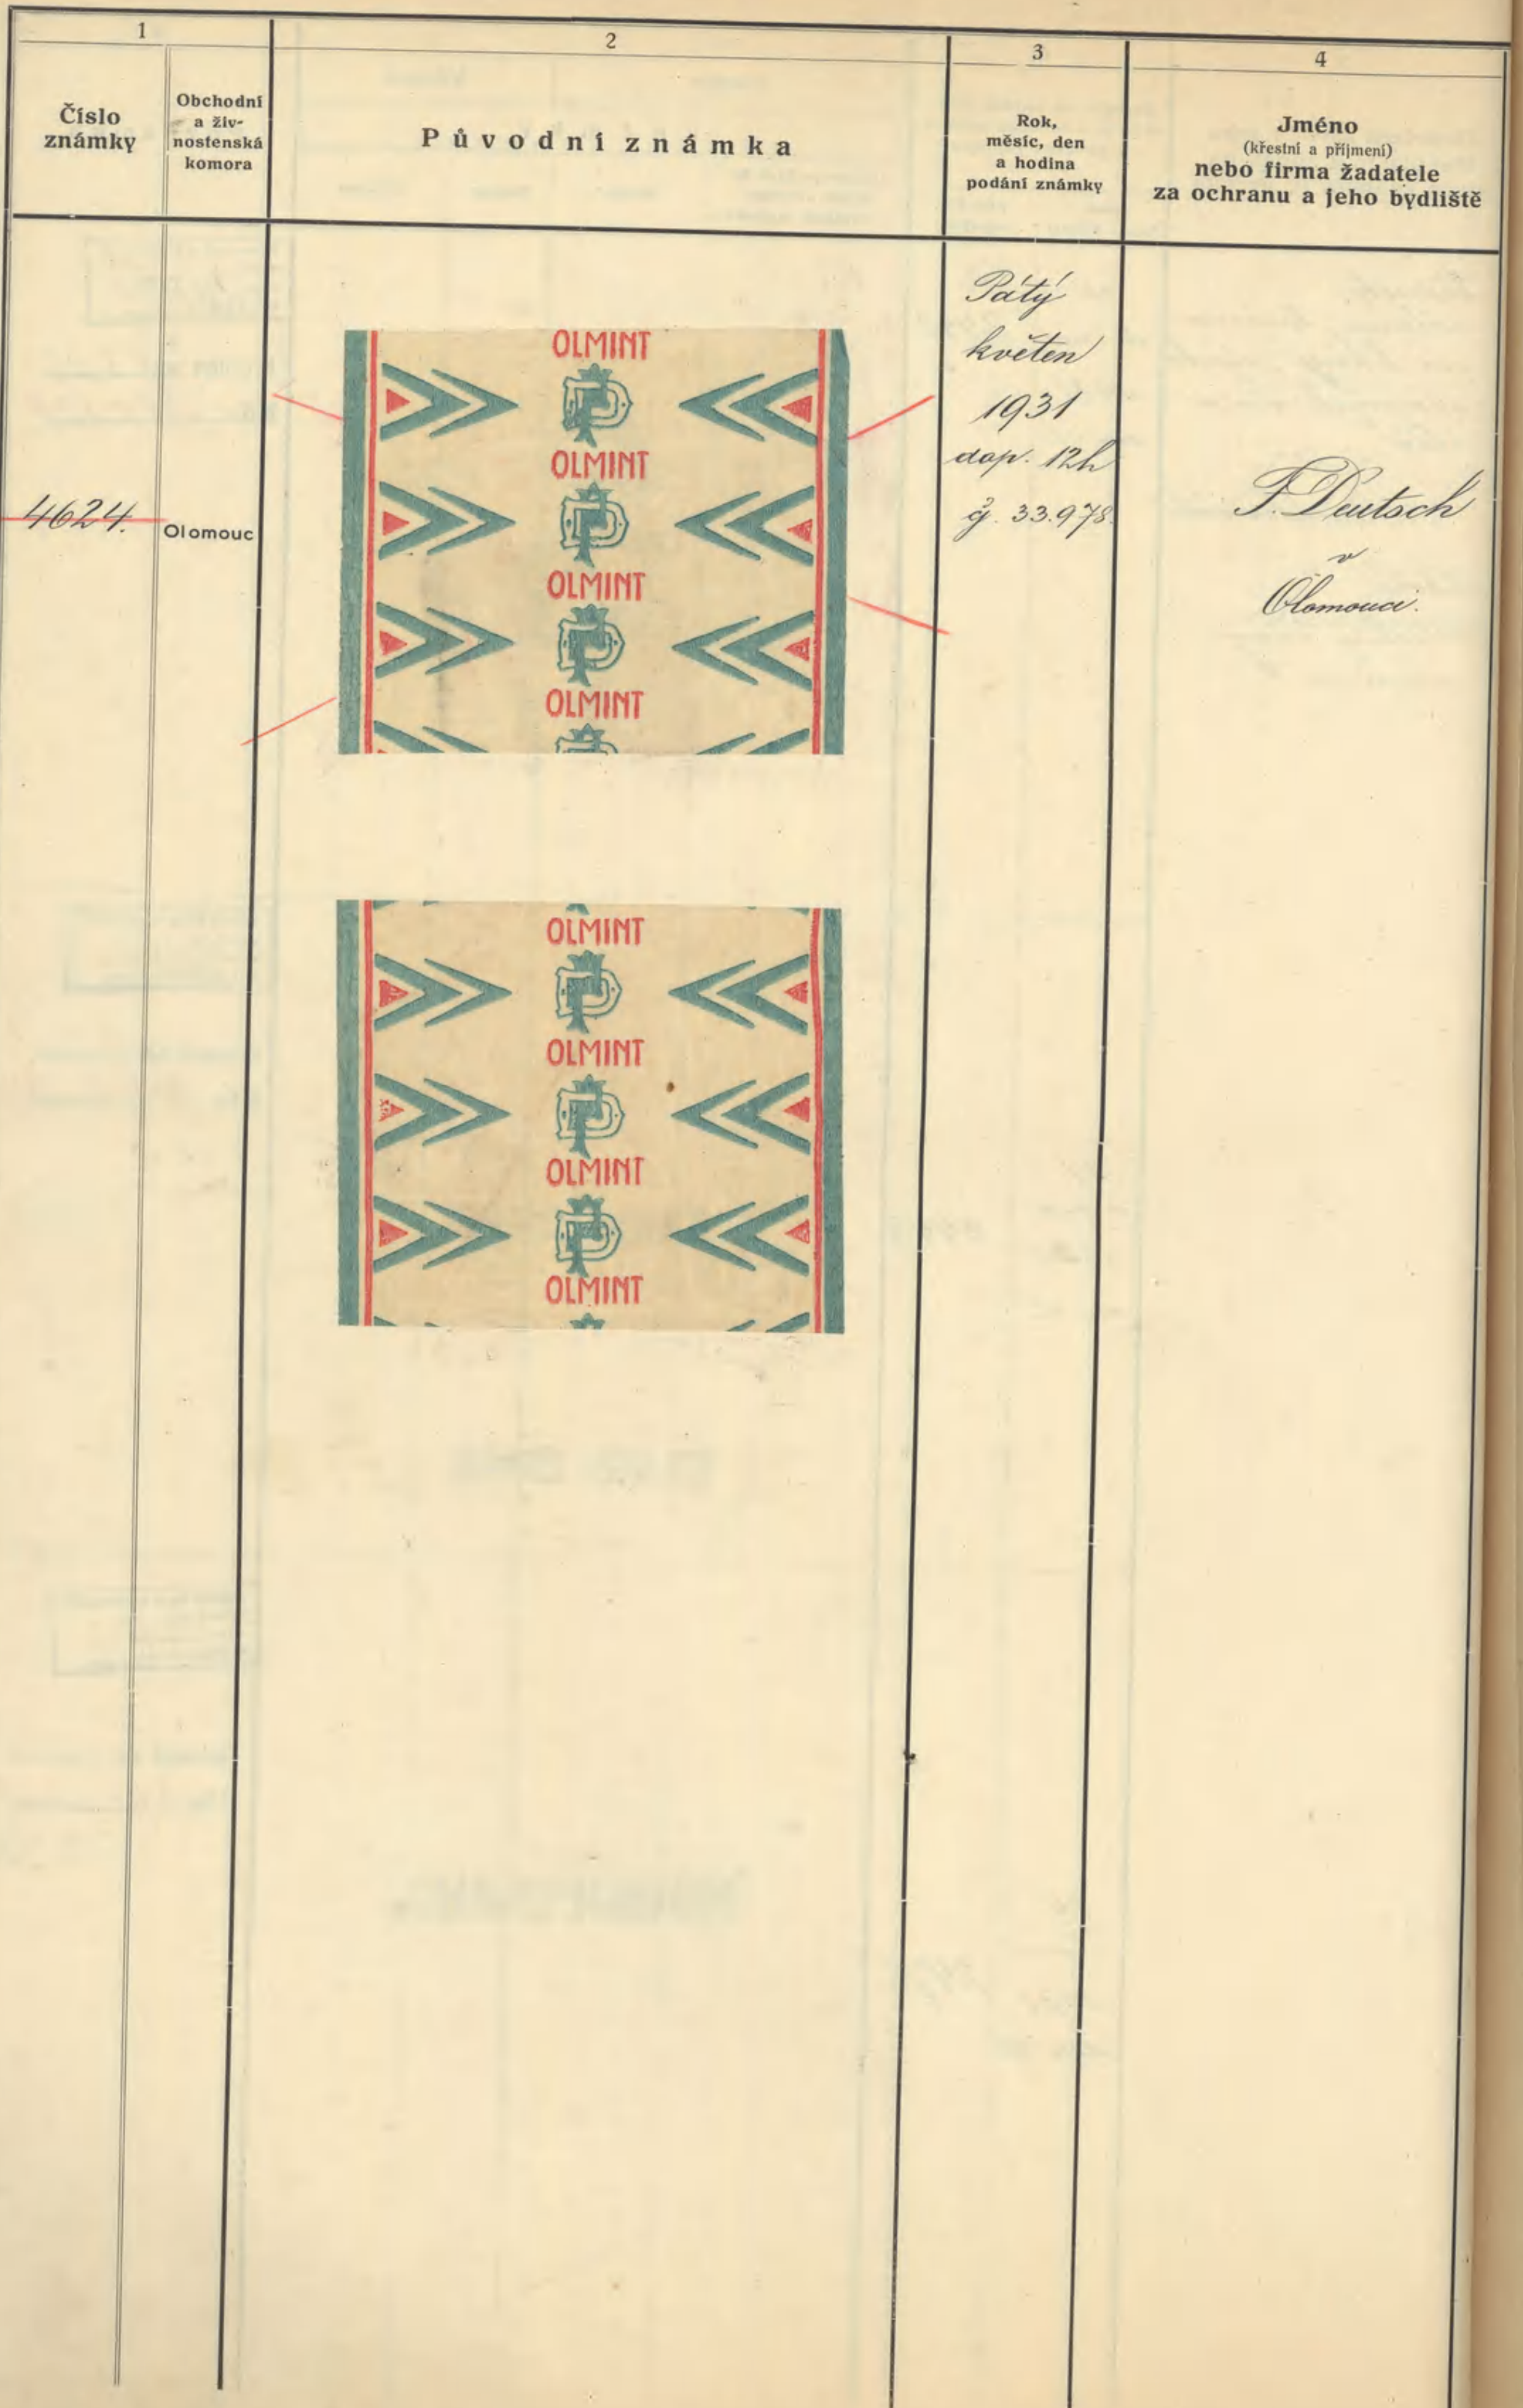 1
2
3
4
Číslo
známky
Obchodní
a živ-
nostenská
komora
Původní známka
Rok,
měsíc, den
a hodina
podání známky
Jméno
(křestní a příjmení)
nebo firma žadatele
za ochranu a jeho bydliště
4624.
Olomouc
OLMINT
OLMINT
OLMINT
OLMINT
OLMINT
OLMINT
OLMINT
OLMINT
Pátý
květen
1931
dop. 12h
33.978.
F. Deutsch
v
Olomouci.